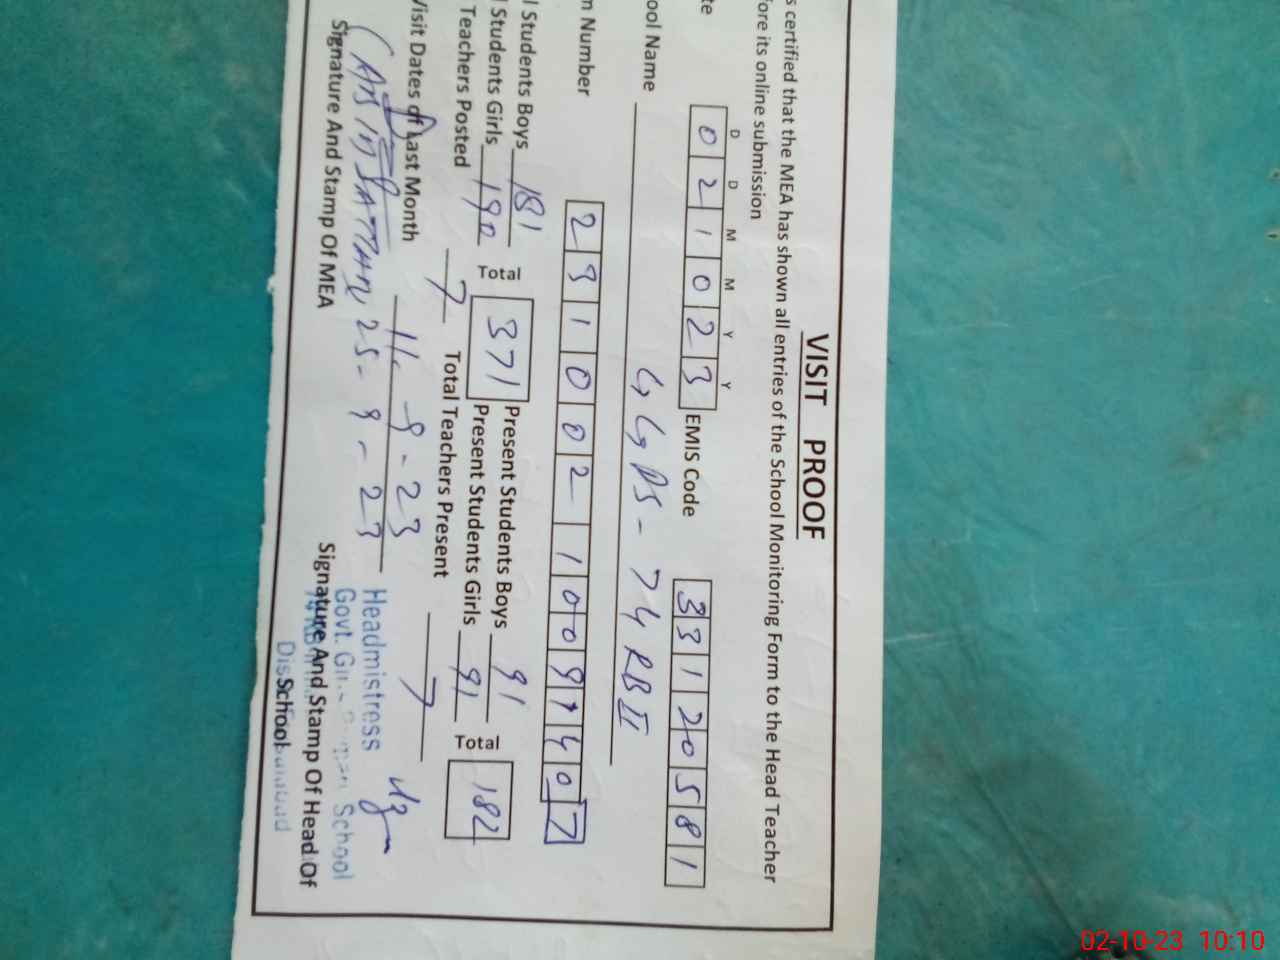 VISIT PROOF
s certified that the MEA has shown all entries of the School Monitoring Form to the Head Teacher
fore its online submission
D D M M Y Y
te 0 2 1 0 2 3 EMIS Code 3 3 1 2 0 5 8 1
ool Name GGPS - 74 RB II
n Number 2 3 1 0 0 2 1 0 0 9 7 4 0 7
l Students Boys 181 Total 371 Present Students Boys 91 Total 182
l Students Girls 190 Present Students Girls 91
Teachers Posted 7 Total Teachers Present 7
Visit Dates of Last Month 11-9-23
25-9-23
Headmistress
Govt. School
Signature And Stamp Of MEA
Signature And Stamp Of Head Of
School
02-10-23 10:10